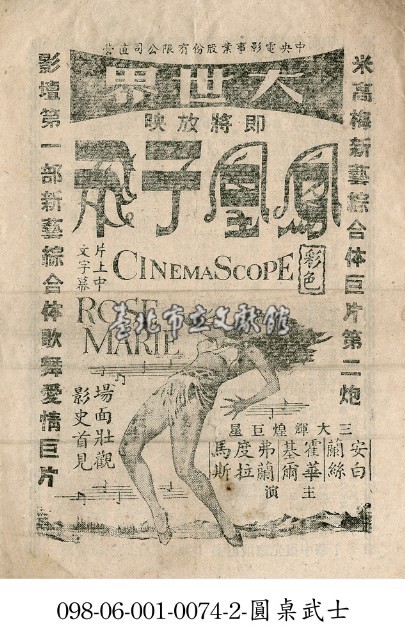 中央電影事業股份有限公司直營
大世界
即將放映
米高梅新藝綜合体巨片第二炮
鳳凰于飛
影壇第一部新藝綜合体歌舞愛情巨片
彩色
CINEMASCOPE
片上中
文字幕
ROSE
MARIE
臺北市立文獻館
場面壯觀
影史首見
三大輝煌巨星
安白蘭絲
霍華基爾
弗蘭度拉馬斯
主演
098-06-001-0074-2-圓桌武士